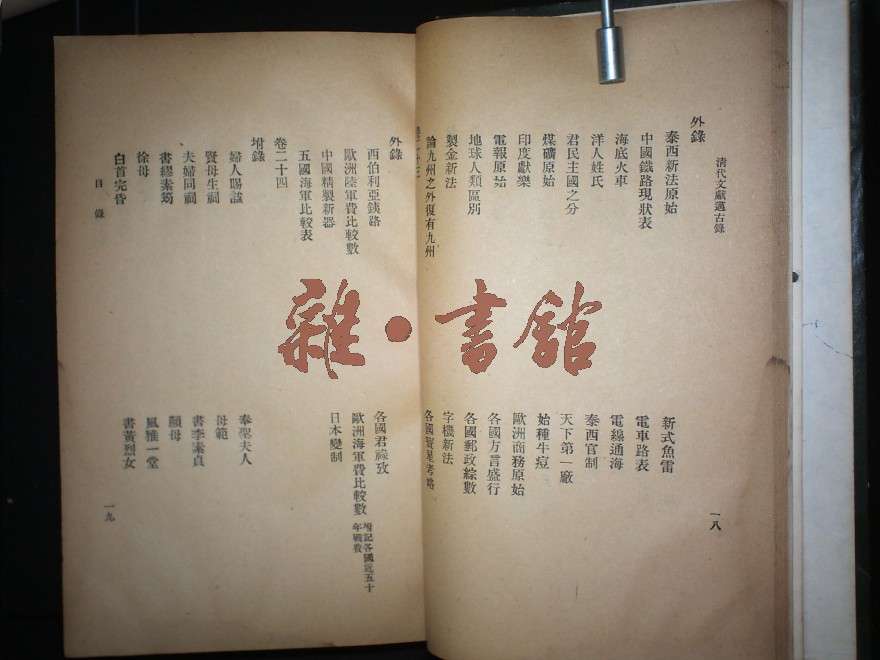 清代文獻邁古錄
外錄
泰西新法原始
新式魚雷
中國鐵路現狀表
電車路表
海底火車
電線通海
洋人姓氏
泰西官制
君民主國之分
天下第一廠
煤礦原始
始種牛痘
印度獻樂
歐洲商務原始
電報原始
各國方言盛行
地球人類區別
各國郵政綜數
製金新法
字機新法
論九州之外復有九州
各國寶星考略
一八
外錄
西伯利亞鐵路
各國君祿攷
歐洲陸軍費比較數
歐洲海軍費比較數 附記各國近五十年戰費
中國精製新器
日本變制
五國海軍比較表
卷二十四
坿錄
婦人賜諡
奉聖夫人
賢母生祠
母範
夫婦同祠
書李素貞
書繆素筠
顏母
徐母
風雅一堂
白首完眚
書黃烈女
目錄
一九
雜·書館